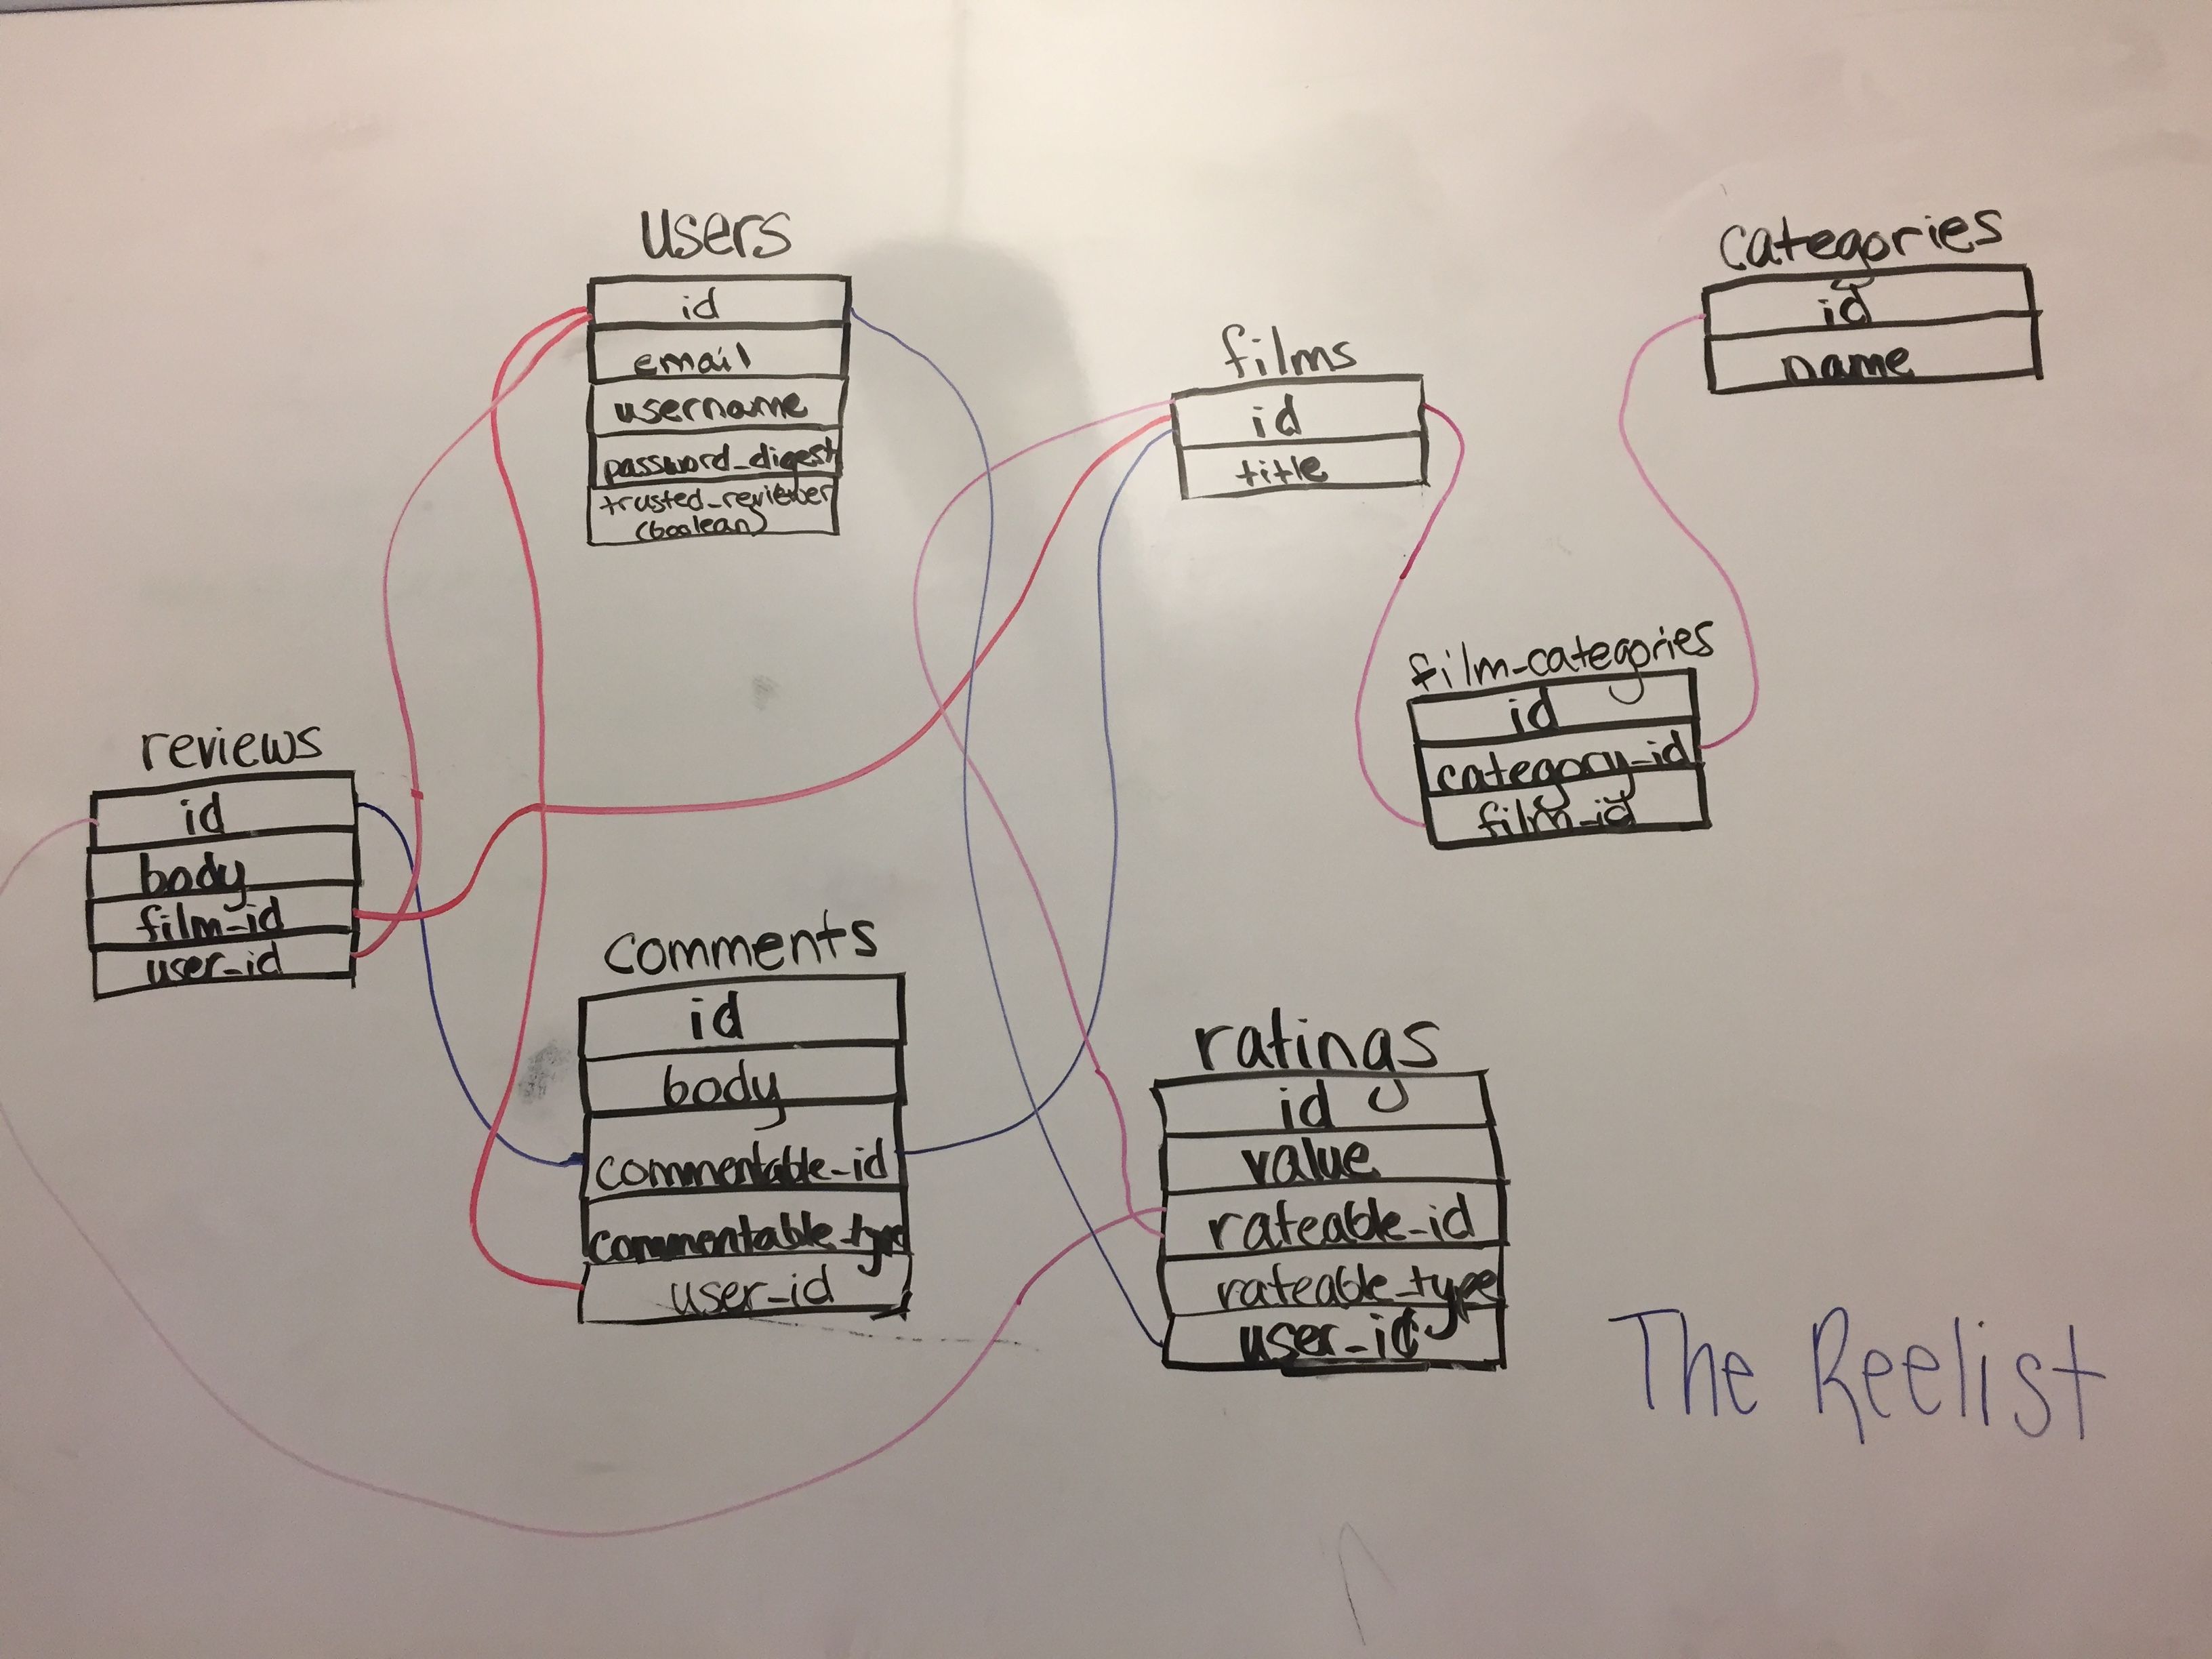 users
id
email
username
password_digest
trusted_reviewer
(boolean)
films
id
title
categories
id
name
film-categories
id
category_id
film_id
reviews
id
body
film_id
user_id
comments
id
body
commentable_id
commentable_type
user_id
ratings
id
value
rateable_id
rateable_type
user_id
The Reelist